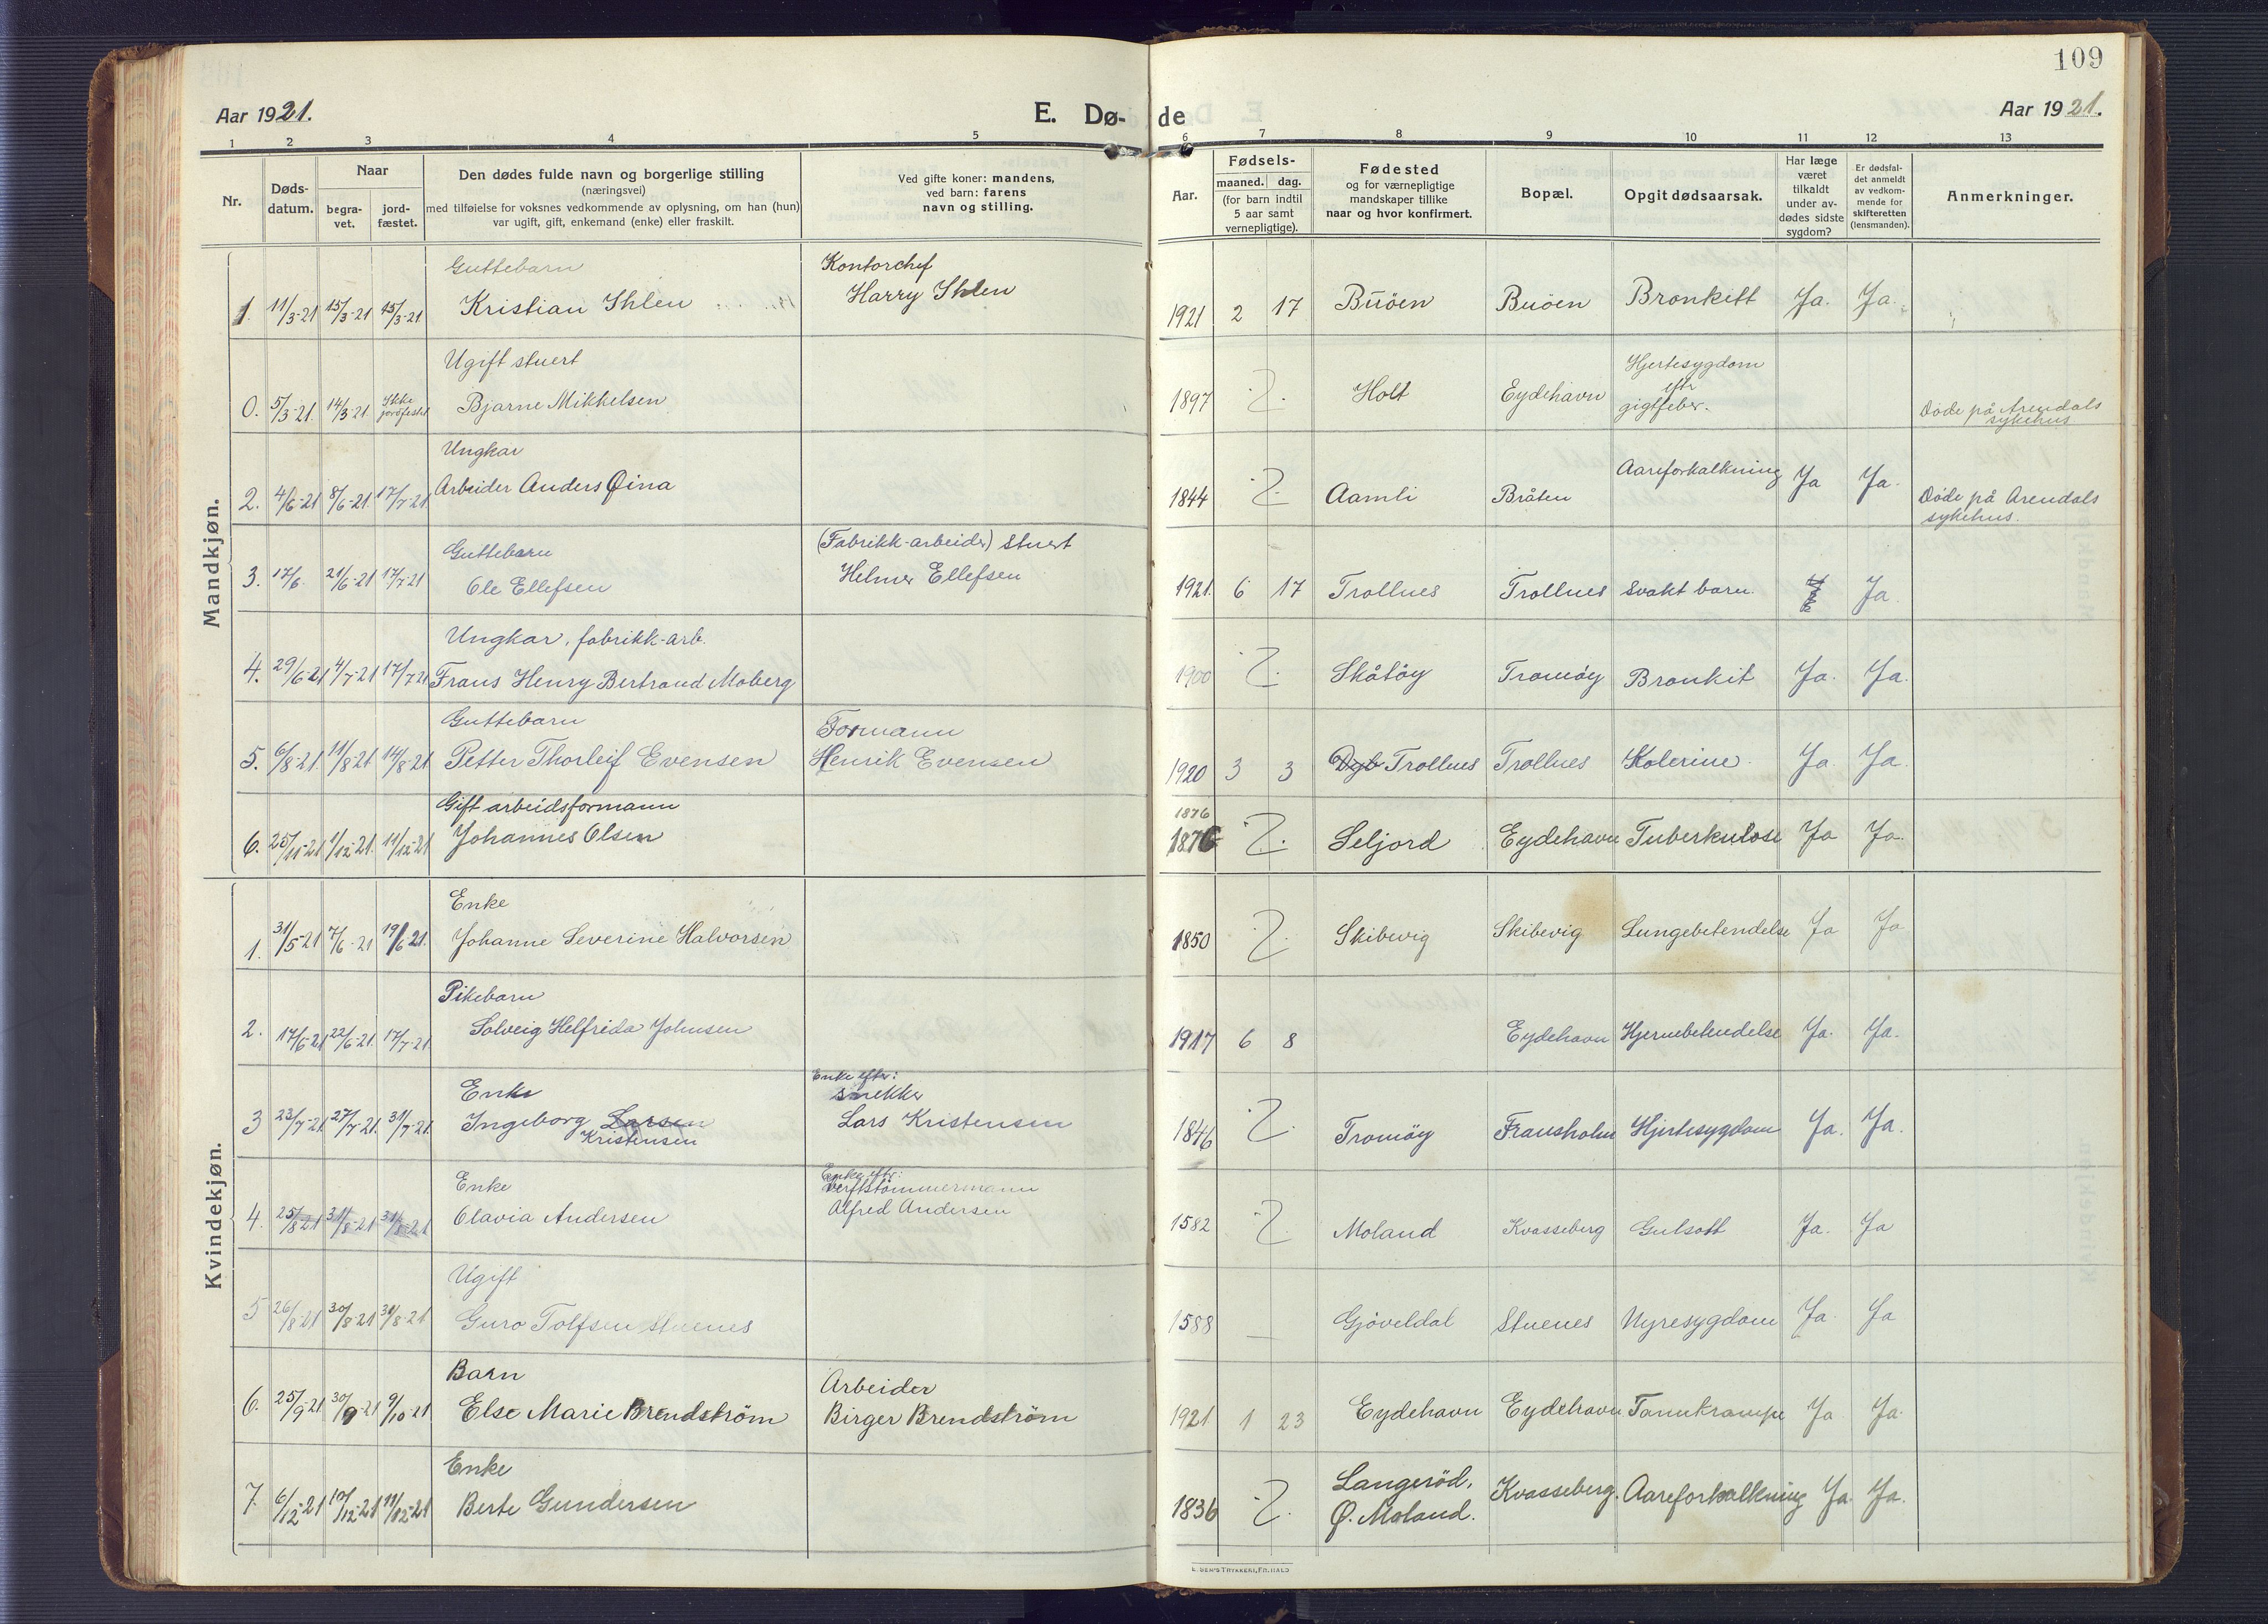 109
Aar 1921.
E. Dø-
de
Aar 1921.
1 2 3 4 5 6 7 8 9 10 11 12 13
Nr.
Døds-
datum.
Naar
begra-
vet.
jord-
fæstet.
Den dødes fulde navn og borgerlige stilling
(næringsvei)
med tilføielse for voksnes vedkommende av oplysning, om han (hun)
var ugift, gift, enkemand (enke) eller fraskilt.
Ved gifte koner: mandens,
ved barn: farens
navn og stilling.
Aar.
Fødsels-
maaned. dag.
(for barn indtil
5 aar samt
vernepligtige).
Fødested
og for værnepligtige
mandskaper tillike
naar og hvor konfirmert.
Bopæl.
Opgit dødsaarsak.
Har læge
været
tilkaldt
under av-
dødes sidste
sygdom?
Er dødsfal-
det anmeldt
av vedkom-
mende for
skifteretten
(lensmanden).
Anmerkninger.
Mandkjøn.
Guttebarn
Kontorchef
1. 11/3-21 15/3-21 15/3-21 Kristian Ihlen Harry Ihlen 1921 2 17 Buöen Buöen Bronkitt Ja. Ja.
Ugift stuert
Hjertesygdom
efter
0. 5/3-21. 14/3-21 Ikke jordfestet Bjarne Mikkelsen 1897 Holt Eydehavn gigtfeber. Döde på Arendals
sykehus
Ungkar
2. 4/6-21 8/6-21 17/7-21 Arbeider Anders Øina 1844 Aamli Bråten Aareforkalkning Ja Ja. Döde på Arendals
sykehus.
Guttebarn (Fabrikk-arbeider) Stuert
3. 17/6. 21/6-21 17/7-21 Ole Ellefsen Helmer Ellefsen 1921. 6 17 Trollnes Trollnes Svakt barn. Ja
Ungkar, fabrikk-arb.
4. 29/6-21 4/7-21 17/7-21 Frans Henry Bertrand Moberg 1900 Skåtöy Tromöy Bronkit Ja. Ja.
Guttebarn Formann
5. 6/8-21. 11/8-21 14/8-21 Petter Thorleif Evensen Henrik Evensen 1920 3 3 Dyb Trollnes Trollnes Kolerine. Ja. Ja.
Gift arbeidsformann 1876
6. 25/11-21 1/12-21. 11/12-21 Johannes Olsen 1876 Seljord Eydehavn Tuberkulose Ja Ja.
Kvindekjøn.
Enke
1. 31/5-21 7/6-21 19/6-21. Johanne Severine Halvorsen 1850 Skibevig Skibevig Lungebetendelse Ja Ja
Pikebarn
2. 17/6-21 22/6-21. 17/7-21. Solveig Helfrida Johnsen 1917 6 8 Eydehavn Hjernebetendelse Ja. Ja.
Enke Enke efter:
snekker
3 23/7-21 27/7-21. 31/7-21. Ingeborg Larsen Lars Kristensen 1846 Tromöy Fransholm Hjertesygdom Ja. Ja.
Kristensen
Enke Enke eftr:
Verftstömmermann
4. 25/8-21 31/8-21 31/8-21 Olavia Andersen Alfred Andersen 1582 Moland Kvasseberg Gulsott Ja. Ja
Ugift
5 26/8-21 30/8-21 31/8-21 Guro Tolfsen Stuenes 1588 Gjöveldal Stuenes Nyresygdom Ja. Ja
Barn Arbeider
6. 25/9-21 30/9-21 9/10-21 Else Marie Brendström Birger Brendström 1921 1 23 Eydehavn Eydehavn Tannkrampe Ja Ja.
Enke Langeröd,
7. 6/12-21 10/12-21 11/12-21 Berte Gundersen 1836 Ø. Moland. Kvasseberg. Aareforkalkning Ja. Ja.